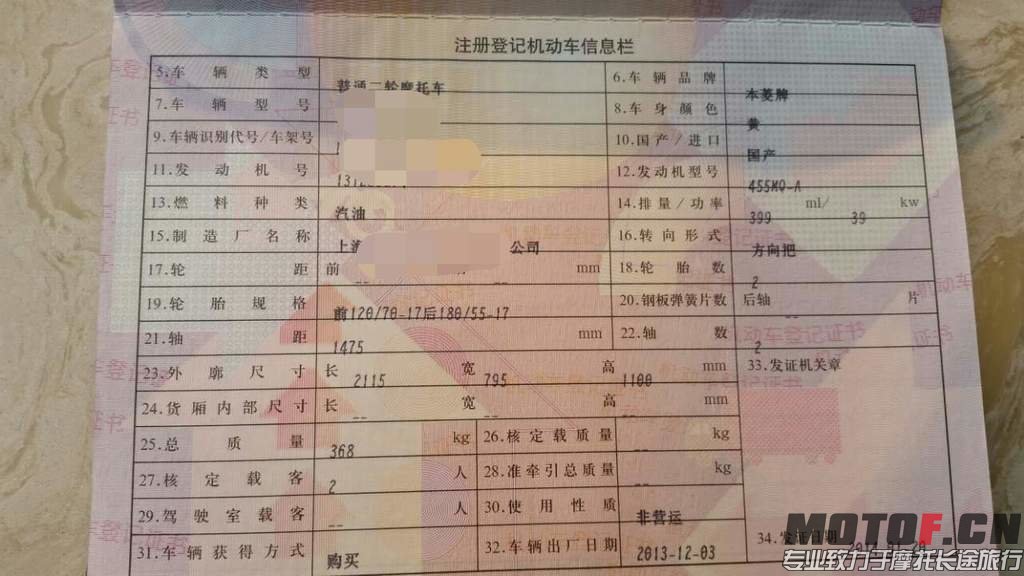 注册登记机动车信息栏
5.车辆类型 普通二轮摩托车 6.车辆品牌 本菱牌
7.车辆型号 8.车身颜色 黄
9.车辆识别代号/车架号 10.国产/进口 国产
11.发动机号 12.发动机型号 455MQ-A
13.燃料种类 汽油 14.排量/功率 399 ml/ 39 kw
15.制造厂名称 上 公司 16.转向形式 方向把
17.轮距 前 -- -- mm 18.轮胎数 2
19.轮胎规格 前120/70-17后180/55-17 20.钢板弹簧片数 后轴 片
21.轴距 1475 mm 22.轴数 2
23.外廓尺寸 长 2115 宽 795 高 1100 mm 33.发证机关章
24.货厢内部尺寸 长 -- 宽 -- 高 -- mm
25.总质量 368 kg 26.核定载质量 -- kg
27.核定载客 2 人 28.准牵引总质量 -- kg
29.驾驶室载客 -- 人 30.使用性质 非营运
31.车辆获得方式 购买 32.车辆出厂日期 2013-12-03 34.发证日期
MOTOF.CN
专业致力于摩托长途旅行